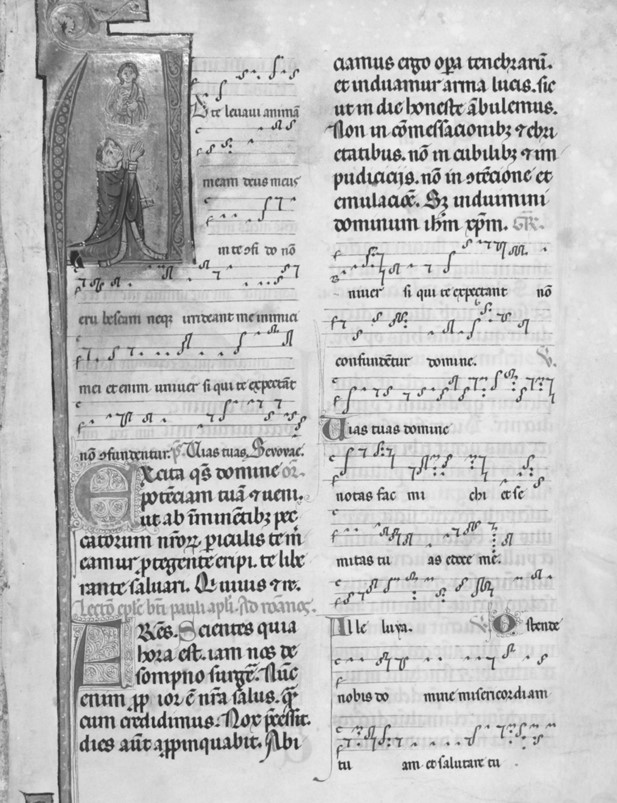 D te levavi animam
meam deus meus
in te ↄfi do nō
eru bescam neqꝫ irrideant me inimici
mei et enim univer si qui te expectāt
nō ↄfundentur. p̄. Vias tuas. Sevovae.
Excita qs domine or̄.
potēciam tuā ⁊ veni.
ut ab īminētibꝫ pec
catorum nr̄oꝝ. periculis te m̄
eamur ꝓtegente eripi. te libe
rante salvari. Qui vivis ⁊ re.
Lectō eple bt̄i pauli apli. Ad romanos.
FRĒS. Scientes quia
hora est. iam nos de
sompno surgē. Nūc
enim ꝓpior ē nr̄a salus. qm̄
cum credidimus. Nox precessit.
dies aūt appinquabit. Abi
ciamus ergo oꝑa tenebrarū.
et induamur arma lucis. sic
ut in die honeste ābulemus.
Non in cōmessacionibꝫ ⁊ ebri
etatibus. nō in cubilibꝫ ⁊ im
pudiciciis. nō in ↄtēcione et
emulacioē. Sꝫ induimini
dominum ihm̄ xp̄m. GR.
niver si qui te expectant nō
confundētur domine. V.
Vias tuas domine
notas fac mi chi et se
mitas tu as edoce me.
Alle luya. V. Ostende
nobis do mine misericordiam
tu am et salutare tu